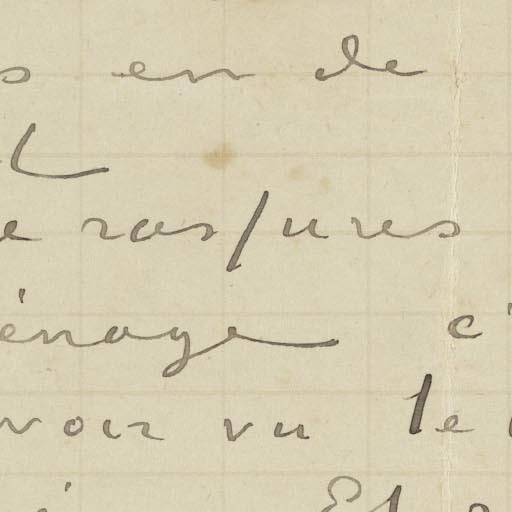 s en de
e ras/ures
énage c'
voir vu le
Et